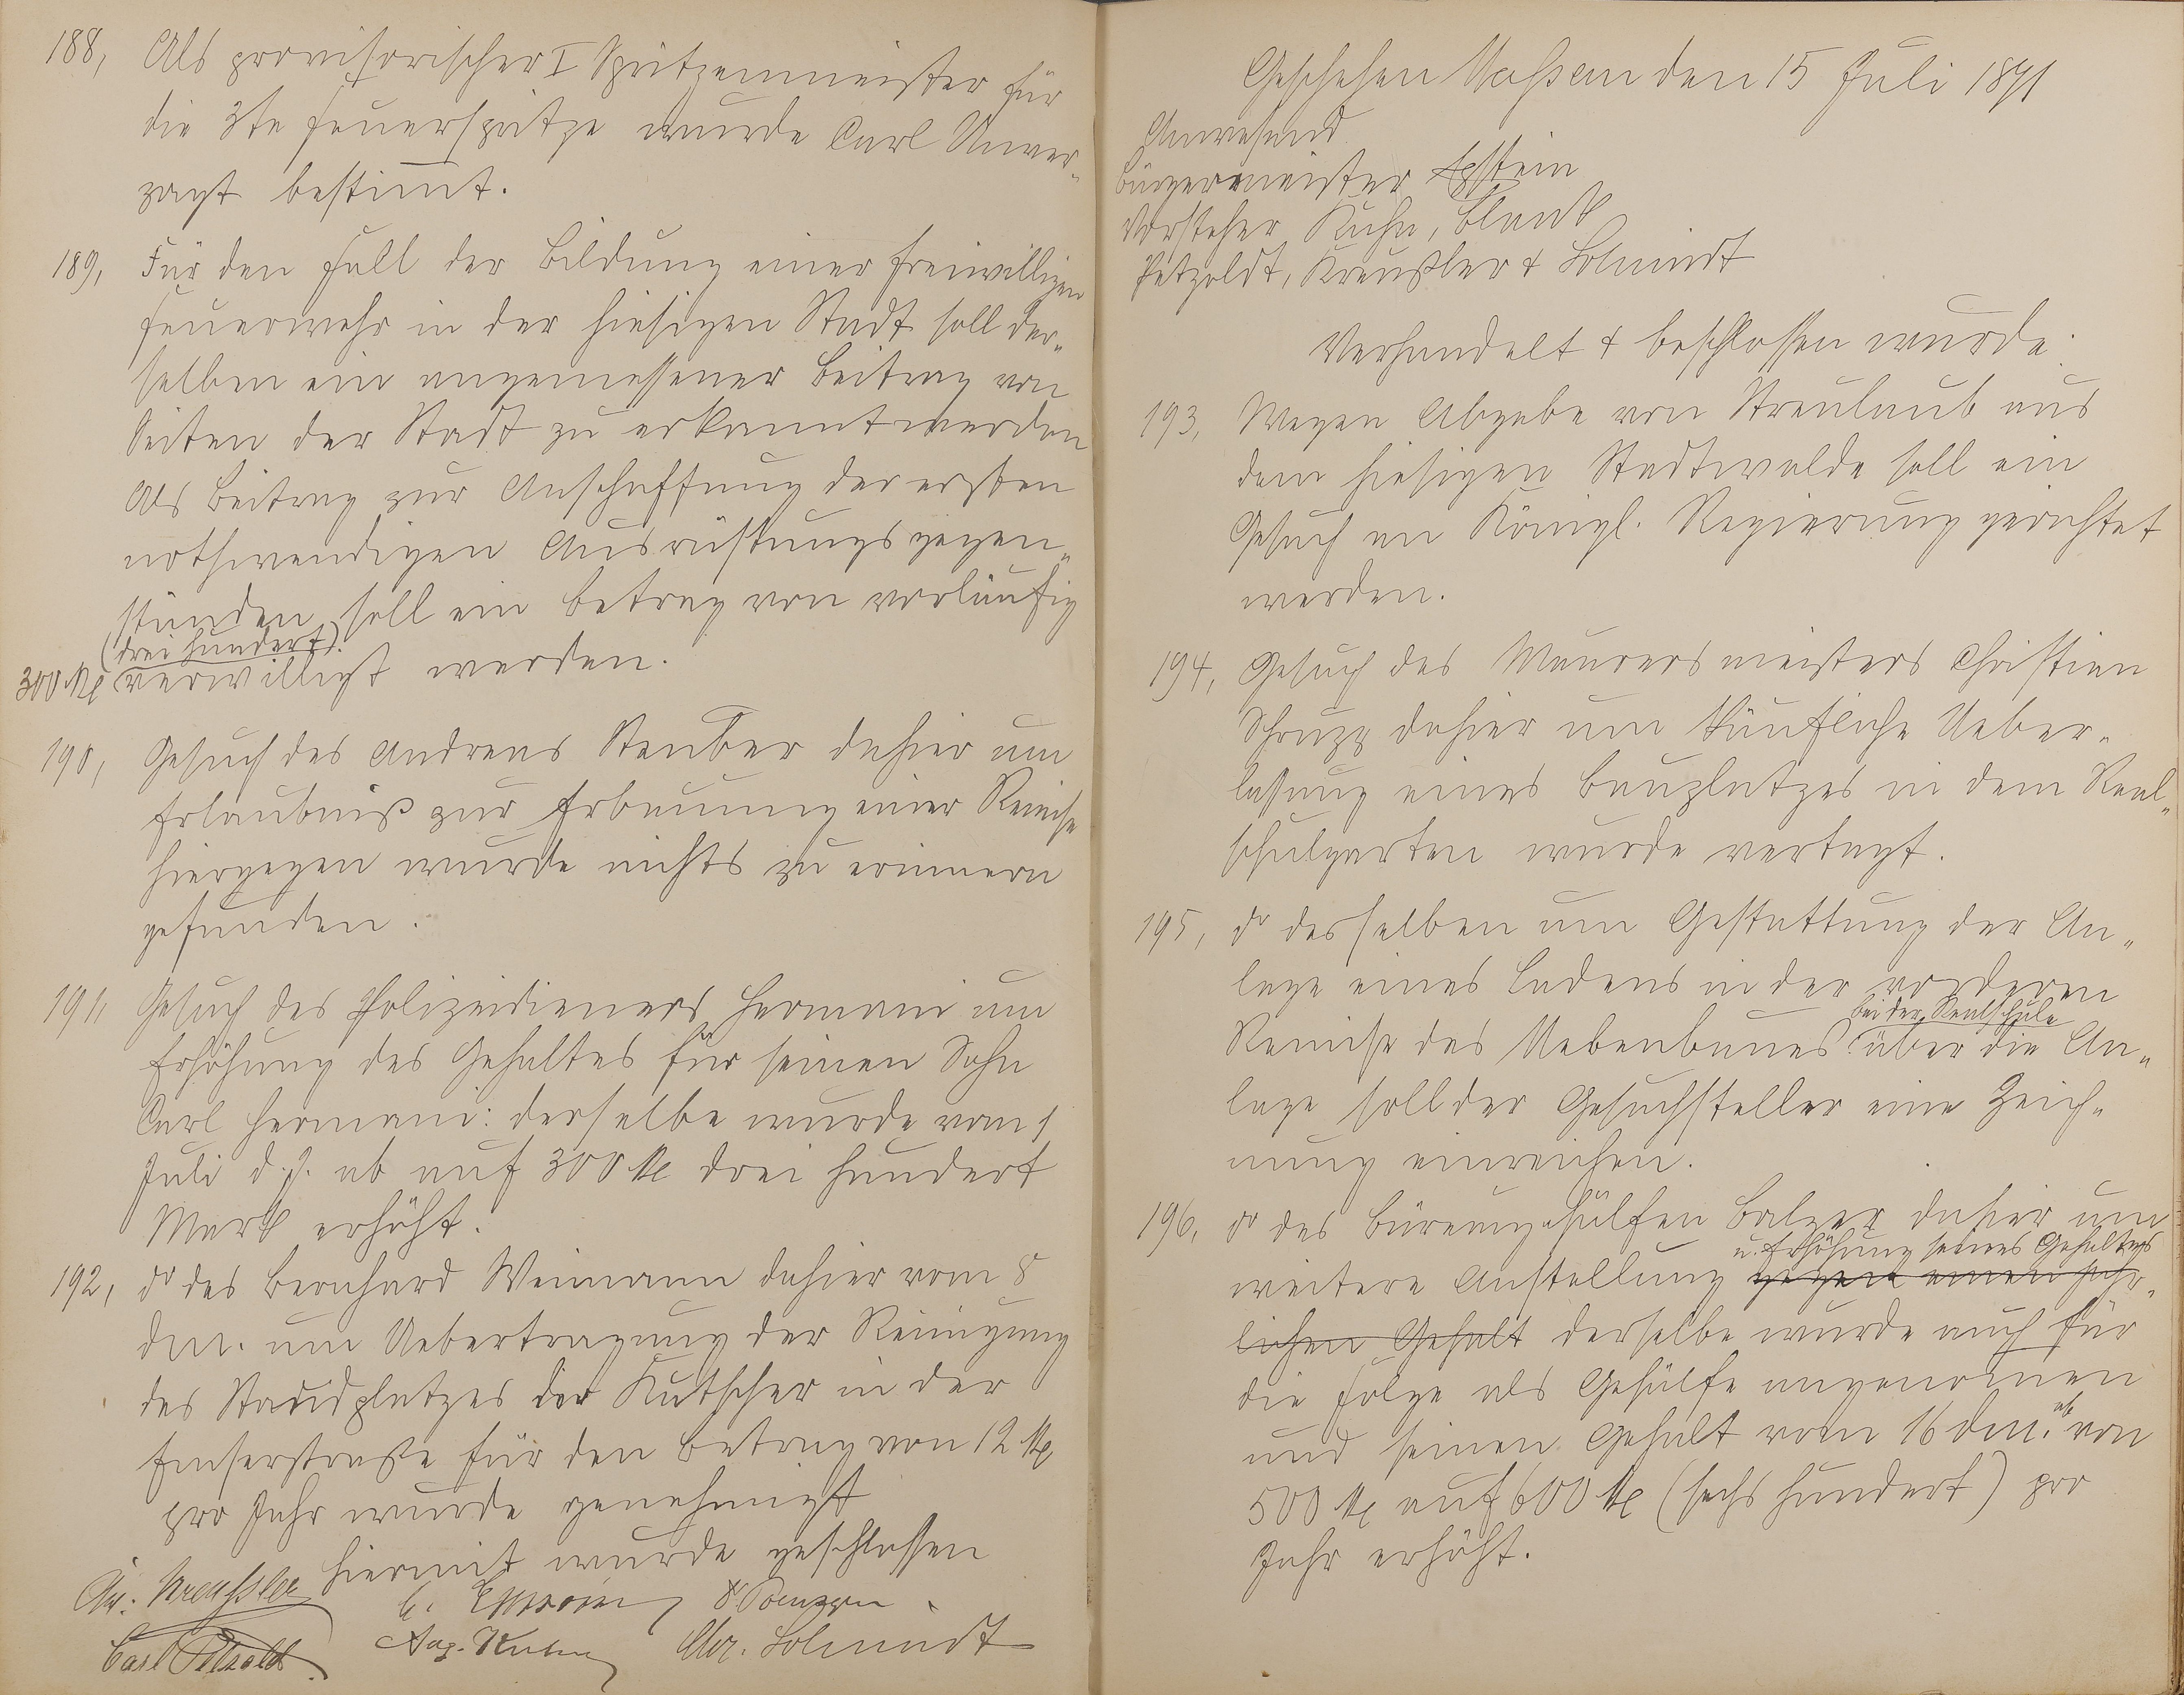 188, Als provisorischer I Spritzenmeister für
die 3te Feuerspritze wurde Carl Unver-
zagt bestimt.
189, Für den Fall der Bildung einer freiwilligen
Feuerwehr in der hiesigen Stadt soll der-
selben ein angemessener Beitrag von
Seiten der Stadt zu erkannt werden
Als Beitrag zur Anschaffung der ersten
nothwendigen Ausrüstungsgegen-
ständen soll ein Betrag von vorläufig
(drei hundert)
300 M verwilligt werden.
190, Gesuch des Andreas Steuber dahier um
Erlaubniß zur Erbauung einer Remise
hiergegen wurde nichts zu erinnern
gefunden.
191, Gesuch des Polizeidieners Hermani um
Erhöhung des Gehaltes für seinen Sohn
Carl Hermani: derselbe wurde vom 1
Juli d. J. ab auf 300 M drei hundert
Mark erhöht.
192, do des Bernhard Weimann dahier vom 8
dM. um Uebertragung der Reinigung
des Standplatzes der Kutscher in der
Emserstraße für den Betrag von 12 M
pro Jahr wurde genehmigt
hiermit wurde geschlossen
Chr. Kreußler
Carl Petzoldt
Aug. Kuhn
Chr. Schmidt
Geschehen Nassau den 15 Juli 1891
Anwesend
Bürgermeister Epstein
Vorsteher Kuhn, Blank
Petzoldt, Kreußler & Schmidt
Verhandelt & beschlossen wurde:
193, Wegen Abgabe von Streulaub aus
dem hiesigen Stadtwalde soll ein
Gesuch an Königl. Regierung gerichtet
werden.
194, Gesuch des Maurersmeisters Christian
Schrupp dahier um käufliche Ueber-
lassung eines Bauplatzes in dem Real-
schulgarten wurde vertagt.
195, do desselben um Gestattung der An-
lage eines Ladens in der vorderen
bei der Realschule
Remise des Nebenbaues über die An-
lage soll der Gesuchsteller eine Zeich-
nung einreichen.
196, do des Büreaugehülfen Balzer dahier um
u. Erhöhung seines Gehaltes
weitere Anstellung gegen einen jähr-
lichen Gehalt derselbe wurde auch für
die Folge als Gehülfe angenomen
und seinen Gehalt vom 16 dM. ab von
500 M auf 600 M (sechs hundert) pro
Jahr erhöht.